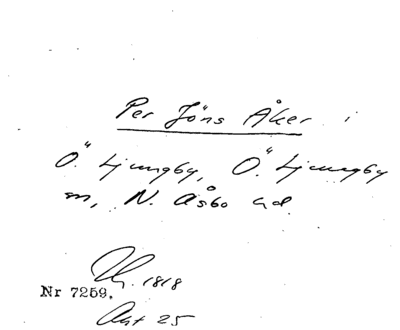 Per Jöns Åker i
Ö. Ljungby, Ö. Ljungby
sn, N. Åsbo hd.
1818
Nr 7259.
Akt 25